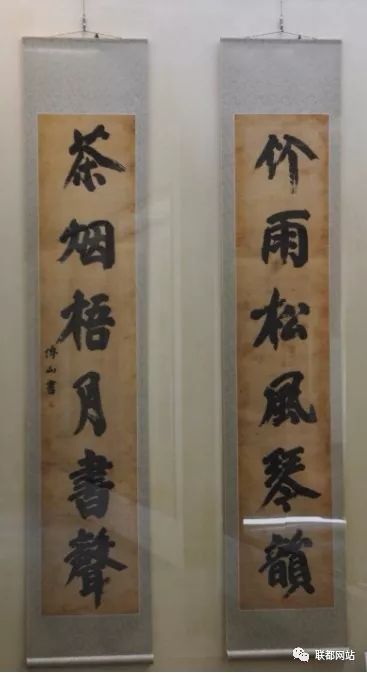 竹雨松風琴韻
茶烟梧月書聲
傅山書
联都网站